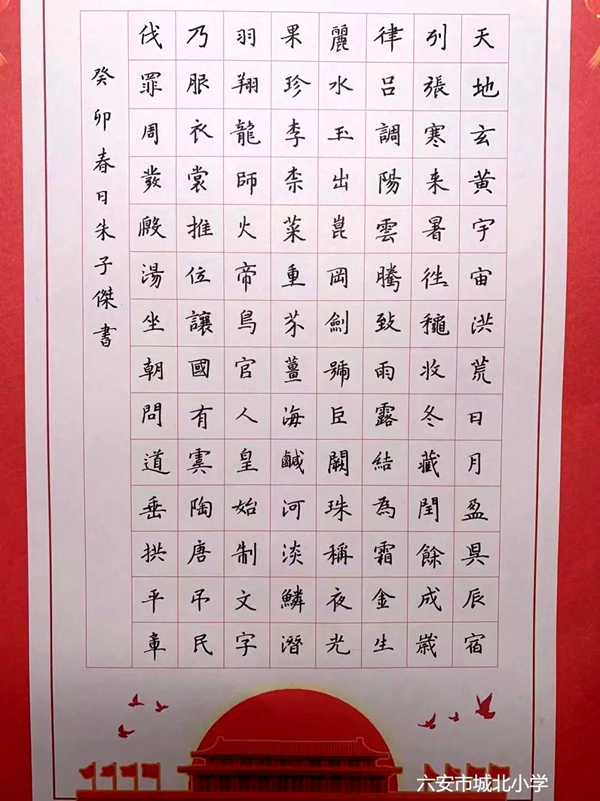 天地玄黃宇宙洪荒日月盈昃辰宿
列張寒来暑徃穐收冬藏閏餘成歲
律吕調陽雲騰致雨露結為霜金生
麗水玉出崑岡劍號巨闕珠稱夜光
果珍李柰菜重芥薑海鹹河淡鱗潛
羽翔龍師火帝鳥官人皇始制文字
乃服衣裳推位讓國有虞陶唐弔民
伐罪周發殷湯坐朝問道垂拱平章
癸卯春日朱子傑書
六安市城北小学